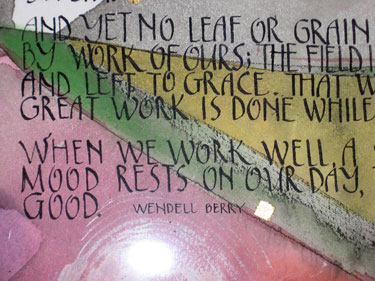 AND YET NO LEAF OR GRAIN
BY WORK OF OURS; THE FIELD I
AND LEFT TO GRACE. THAT W
GREAT WORK IS DONE WHILE
WHEN WE WORK WELL, A
MOOD RESTS ON OUR DAY,
GOOD. WENDELL BERRY